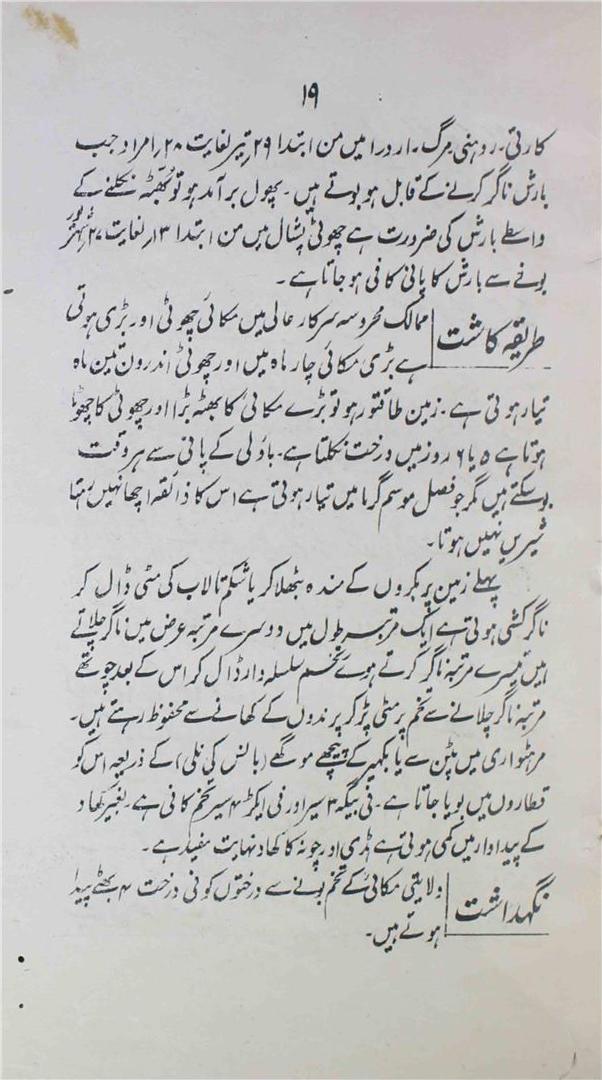 ۱۹
کارتی۔ روہنی مرگ۔ اردرا میں من ابتدا ۲۹ تیر لغایت ۲۸ امرداد جب
بارش ناگر کرنے کے قابل ہو بوتے ہیں۔ پھول برآمد ہو تو بُھٹہ نکلنے کے
واسطے بارش کی ضرورت ہے چھوٹی پشال میں من ابتدا ۱۳ لغایت ۲۷
بونے سے بارش کا پانی کافی ہو جاتا ہے۔
طریقہ کاشت
ممالک محروسہ سرکار عالی میں مکائی چھوٹی اور بڑی ہوتی
ہے بڑی مکائی چار ماہ میں اور چھوٹی اندرون تین ماہ
تیار ہوتی ہے۔ زمین طاقتور ہو تو بڑے مکائی کا بھٹہ بڑا اور چھوٹی کا چھوٹا
ہوتا ہے ۵ یا ۶ روز میں درخت نکلتا ہے۔ باؤلی کے پانی سے ہر وقت
بو سکتے ہیں مگر جو فصل موسم گرما میں تیار ہوتی ہے اس کا ذائقہ اچھا نہیں رہتا
شیریں نہیں ہوتا۔
پہلے زمین پر بکروں کے مندہ بٹھلا کر یا شکم تالاب کی مٹی ڈال کر
ناگر کشی ہوتی ہے ایک مرتبہ طول میں دوسرے مرتبہ عرض میں ناگر چلاتے
ہیں تیسرے مرتبہ ناگر کرتے ہوے تخم سلسلہ وار ڈال کر اس کے بعد چوتھے
مرتبہ ناگر چلانے سے تخم پر مٹی پڑ کر پرندوں کے کھانے سے محفوظ رہتے ہیں۔
مرہٹواری میں پٹن سے یا بکھر کے پیچھے موگھے (بانس کی نلی) کے ذریعہ اس کو
قطاروں میں بویا جاتا ہے۔ فی بیگہ ۳ سیر اور فی ایکڑ ۴ سیر تخم کافی ہے۔ بغیر کھاد
کے پیداوار میں کمی ہوتی ہے ہڈی اور چونہ کا کھاد نہایت مفید ہے۔
نگہداشت
ولایتی مکائی کے تخم بونے سے درختوں کو فی درخت ۴ بھٹے پیدا
ہوتے ہیں۔